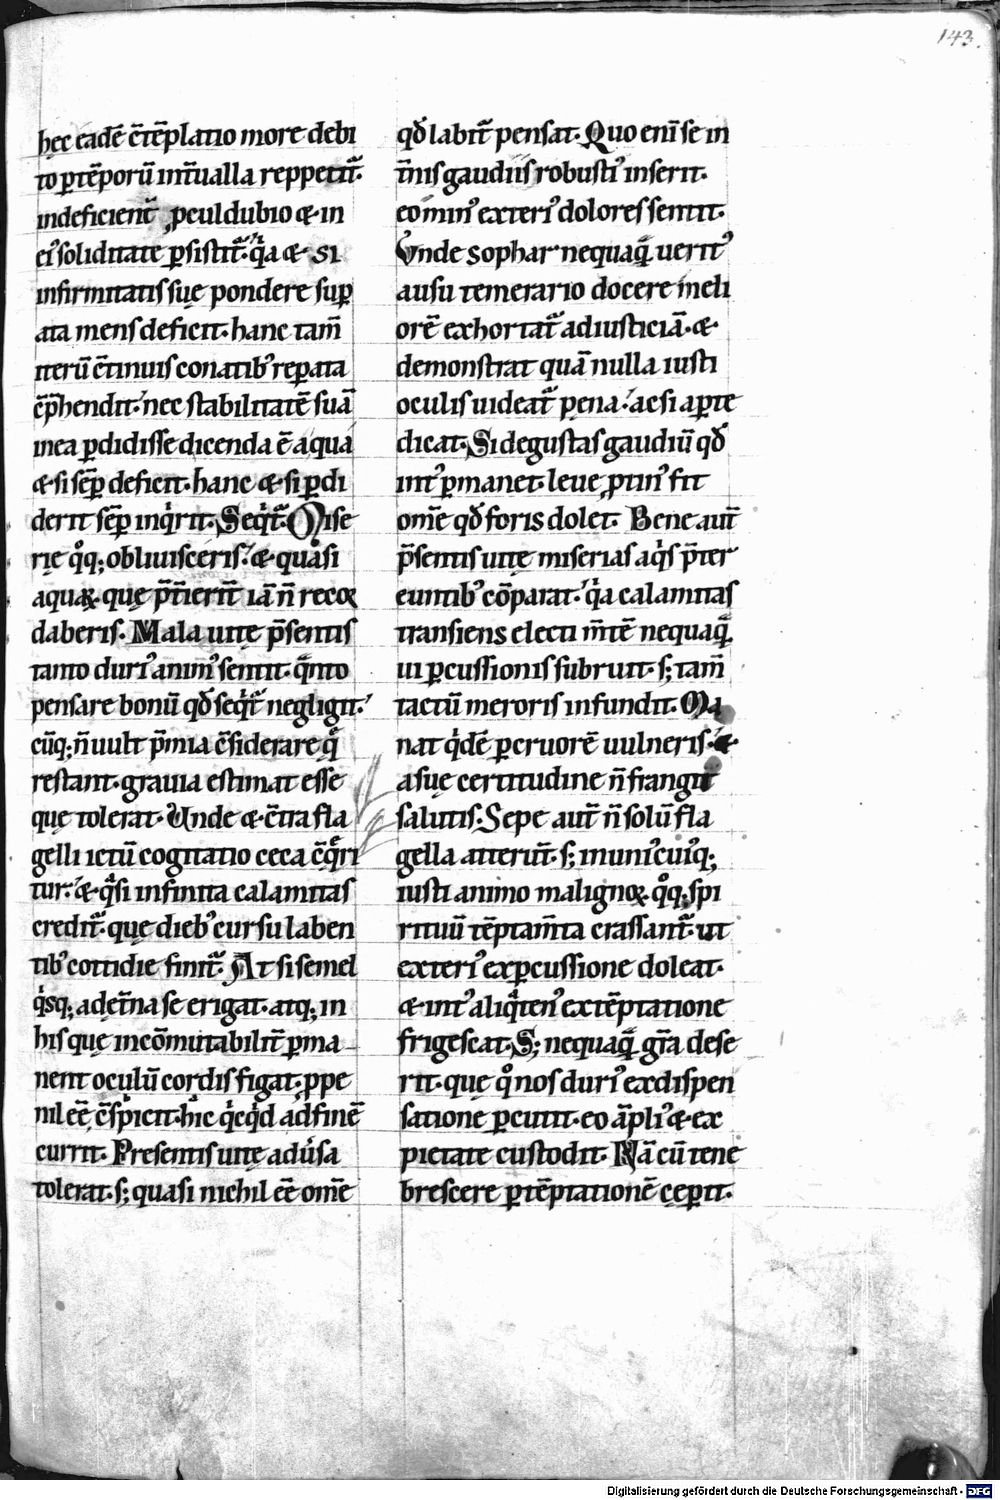 143.
hec eadē c̄tēplatio more debi
to ꝑ tēporū int̄ualla reppetit᷑.
indeficient᷑ ꝓcul dubio & in
ei᷒ soliditate ꝑsistit᷑. q̓a & si
infirmitatis suę pondere suꝑ
ata mens deficit. hanc tam̄
iterū c̄tinuis conatib᷒ reꝑata
c̄p̄hendit. nec stabilitatē suā
in ea ꝑdidisse dicenda ē a qua
& si sēꝑ deficit. hanc & si ꝑdi
derit sēꝑ inq̓rit. Seq̓t᷑. Mise
rię q̊q; obliuisceris. & quasi
aquaꝝ. quę p̄t̄ierīt iā n̄ recoꝛ
daberis. Mala uitę p̄sentis
tanto duri᷒ anim᷒ sentit. q̄nto
pensare bonū qđ seq̓t᷑ negligit.
cūq; n̄ uult p̄mia c̄siderare q̄
restant. grauia estimat esse
quę tolerat. Unde & c̄tra fla
gelli ictū cogitatio ceca c̄q̄ri
tur. & q̄si infinita calamitas
credit᷑. quę dieb᷒ cursu laben
tib᷒ cottidie finit᷑. At si semel
q̓sq; ad et̄na se erigat. atq; in
his quę incōmutabilit̄ ꝑma
nent oculū cordis figat. ꝓpe
nil eē c̄spicit. hic q̓cq̓d ad finē
currit. Presentis uitę adūsa
tolerat. s; quasi nichil eē om̄e
qđ labit᷑ pensat. Quo eni̅ se in
t̄nis gaudiis robusti᷒ inserit.
eo min᷒ exteri᷒ dolores sentit.
Vnde sophar nequaq̄ uerit᷒
ausu temerario docere meli
orē exhortat᷑ ad iusticiā. &
demonstrat quā nulla iusti
oculis uideat᷑ pena. ac si aꝑte
dicat. Si degustas gaudiū qđ
int᷒ ꝑmanet. leue ꝓtin᷒ fit
om̄e qđ foris dolet. Bene aut̄
p̄sentis uitę miserias aq̓s p̄ter
euntib᷒ cōparat. q̓a calamitas
transiens electi m̄tē nequaq̄
ui ꝑcussionis subruit. s; tam̄
tactū meroris infundit. Ma
nat q̓dē ꝑ cruorē uulneris. &
a suę certitudine n̄ frangit
salutis. Sepe aut̄ n̄ solū fla
gella atterūt. s; in uni᷒cui᷒q;
iusti animo malignoꝝ q̊q; spi
rituū tēptam̄ta crassant᷑. ut
exteri᷒ ex ꝑcussione doleat.
& int᷒ aliq̄ten᷒ ex tēptatione
frigescat. S; nequaq̄ gr̄a dese
rit. quę q̊ nos duri᷒ ex dispen
satione ꝑcutit. eo āpli᷒ & ex
pietate custodit. Nā cū tene
brescere ꝑ tēptationē cęꝑit.
Digitalisierung gefördert durch die Deutsche Forschungsgemeinschaft - DFG